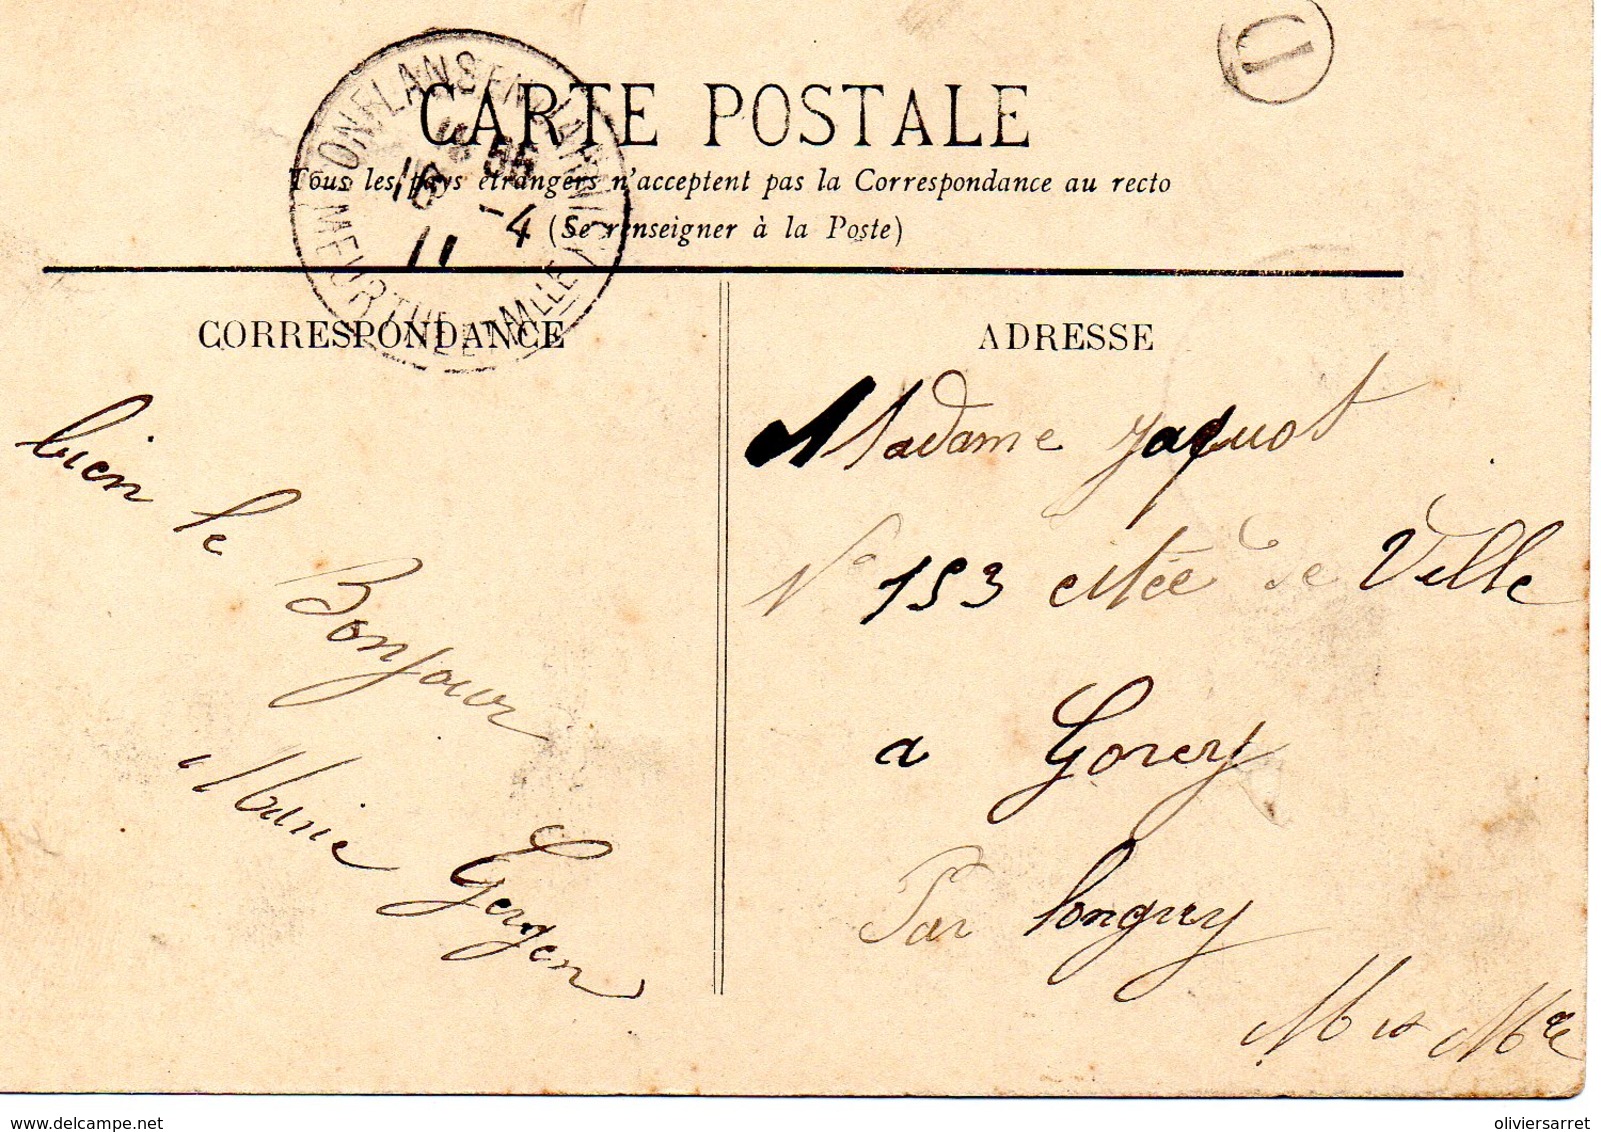 CARTE POSTALE
Tous les pays étrangers n'acceptent pas la Correspondance au recto
(Se renseigner à la Poste)
CONFLANS EN JARNISY
16 55
16 -4
11
MEURTHE ET MLLE
D
CORRESPONDANCE
bien le
Bonjour
Marie
Geryen
ADRESSE
Madame Jaquot
No 153 citée de Ville
a Gorcy
Par longwy
M et Mlle
delcampe.net
oliviersarret